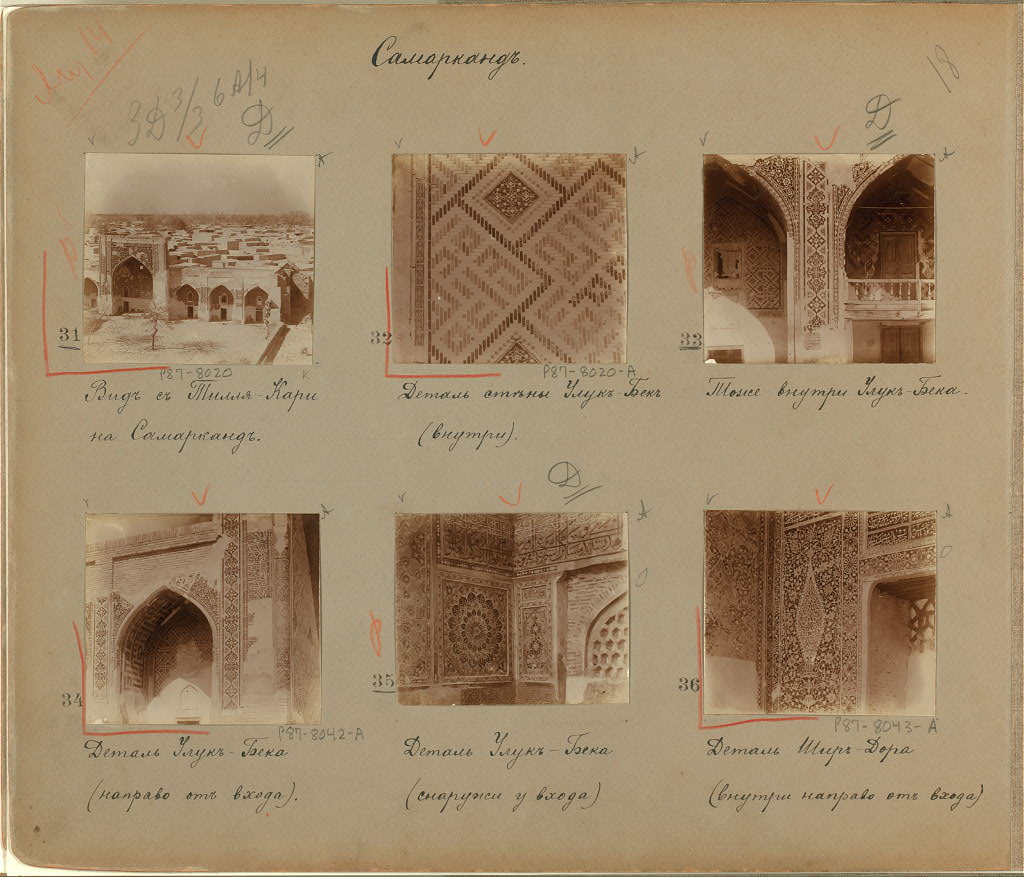 Самаркандъ.
18
3Д 3/3 6 А/4
Д
Д
31
P87-8020
Видъ съ Тилля-Кари
на Самаркандъ.
32
P87-8020-A
Деталь стѣны Улукъ-Бекъ
(внутри).
33
Тоже внутри Улукъ-Бека.
34
P87-8042-A
Деталь Улукъ-Бека
(направо отъ входа).
Д
35
Деталь Улукъ-Бека
(снаружи у входа)
36
P87-8043-A
Деталь Ширъ-Дора
(внутри направо отъ входа)